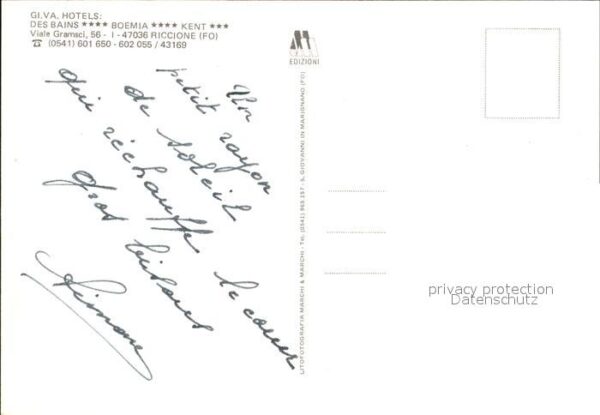 GI.VA. HOTELS:
DES BAINS **** BOEMIA **** KENT ***
Viale Gramsci, 56 - I - 47036 RICCIONE (FO)
☎ (0541) 601 650 - 602 055 / 43169
Un
petit rayon
de soleil
qui réchauffe le cœur
Gros bisous
Simone
M
EDIZIONI
LITOFOTOGRAFIA MARCHI & MARCHI - Tel. (0541) 955 157 - S. GIOVANNI IN MARIGNANO (FO)
privacy protection
Datenschutz